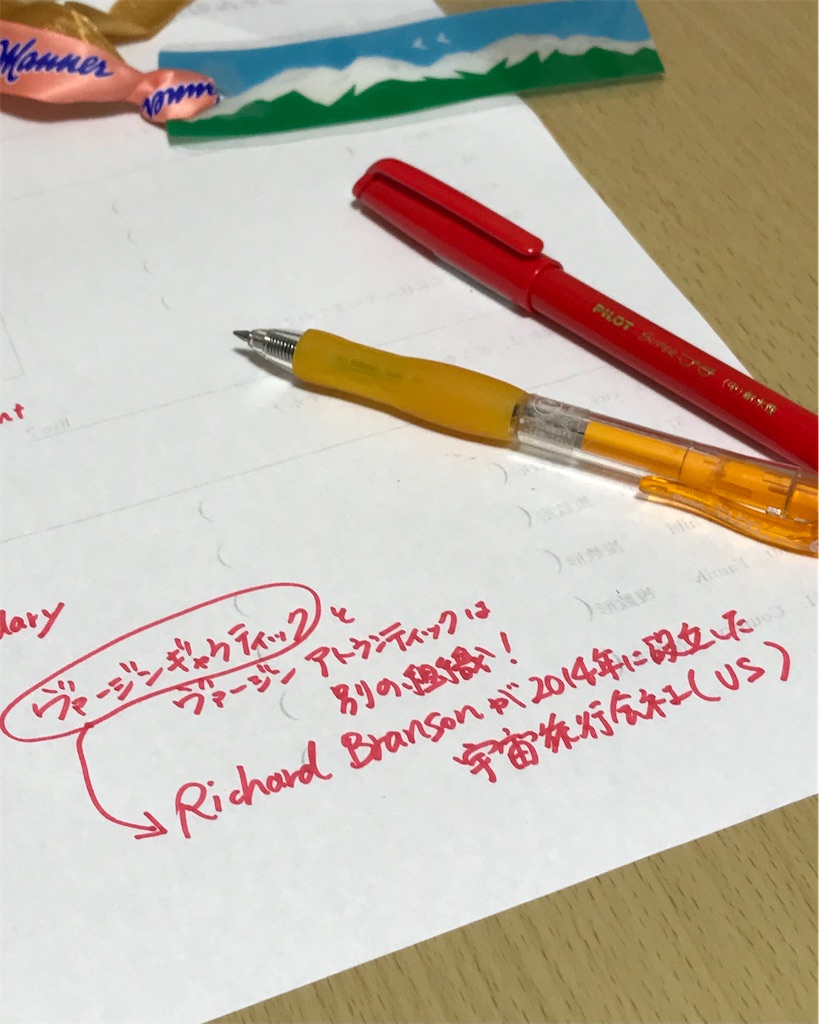 Manner
Manner
PILOT
dary
ヴァージンギャクティックと
ヴァージン アトランティックは
別の組織!
Richard Bransonが2014年に設立した
宇宙旅行会社(US)